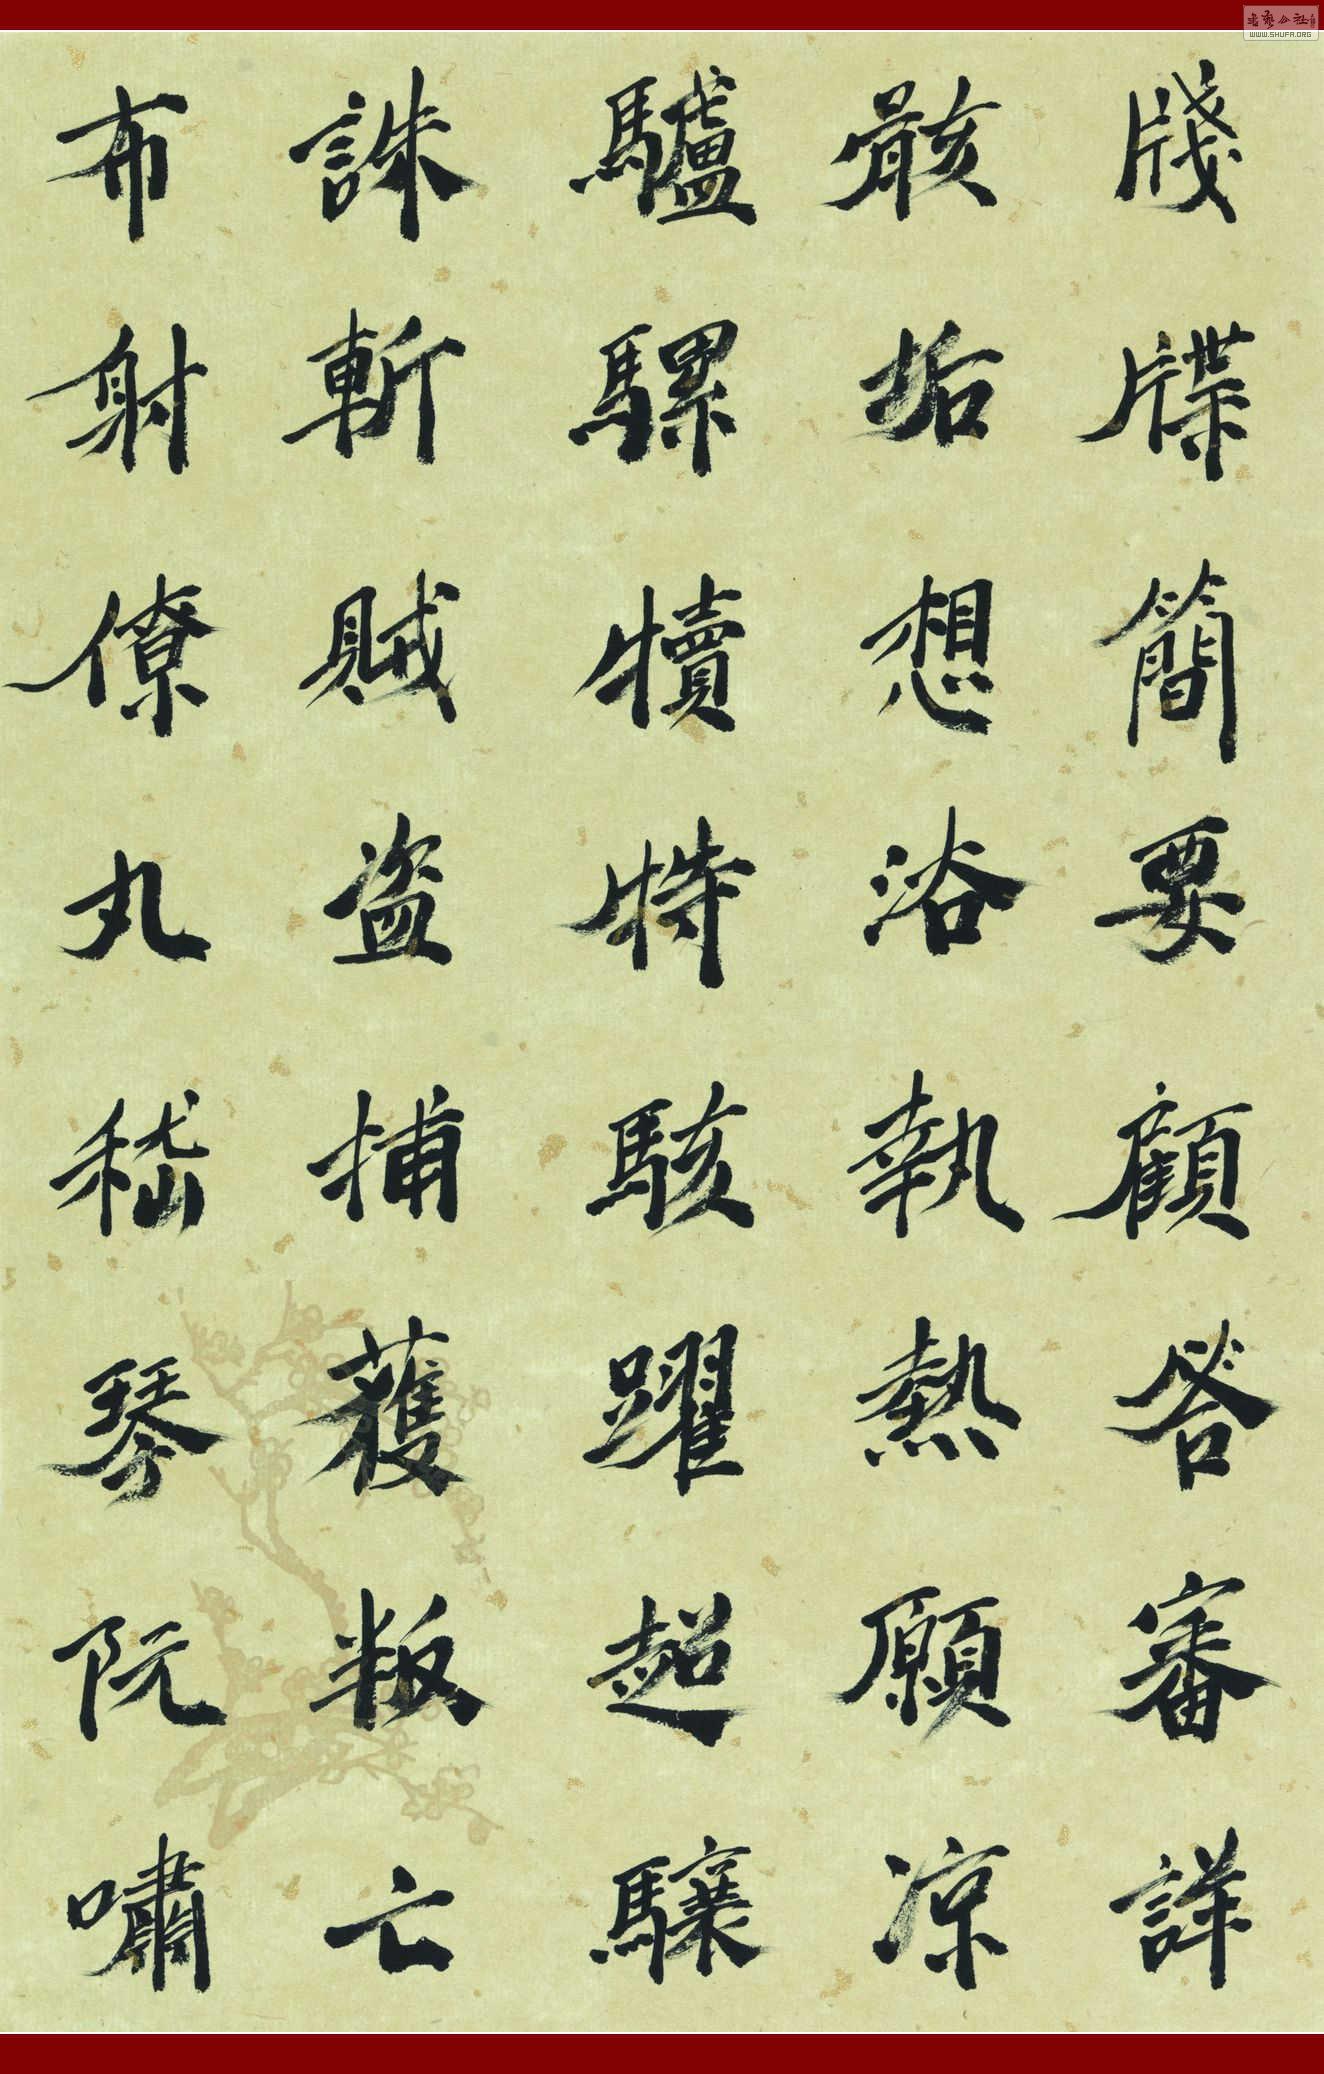 牋牒簡要顧答審詳
骸垢想浴執熱願涼
驢騾犢特駭躍超驤
誅斬賊盗捕獲叛亡
布射僚丸嵇琴阮嘯
WWW.SHUFA.ORG